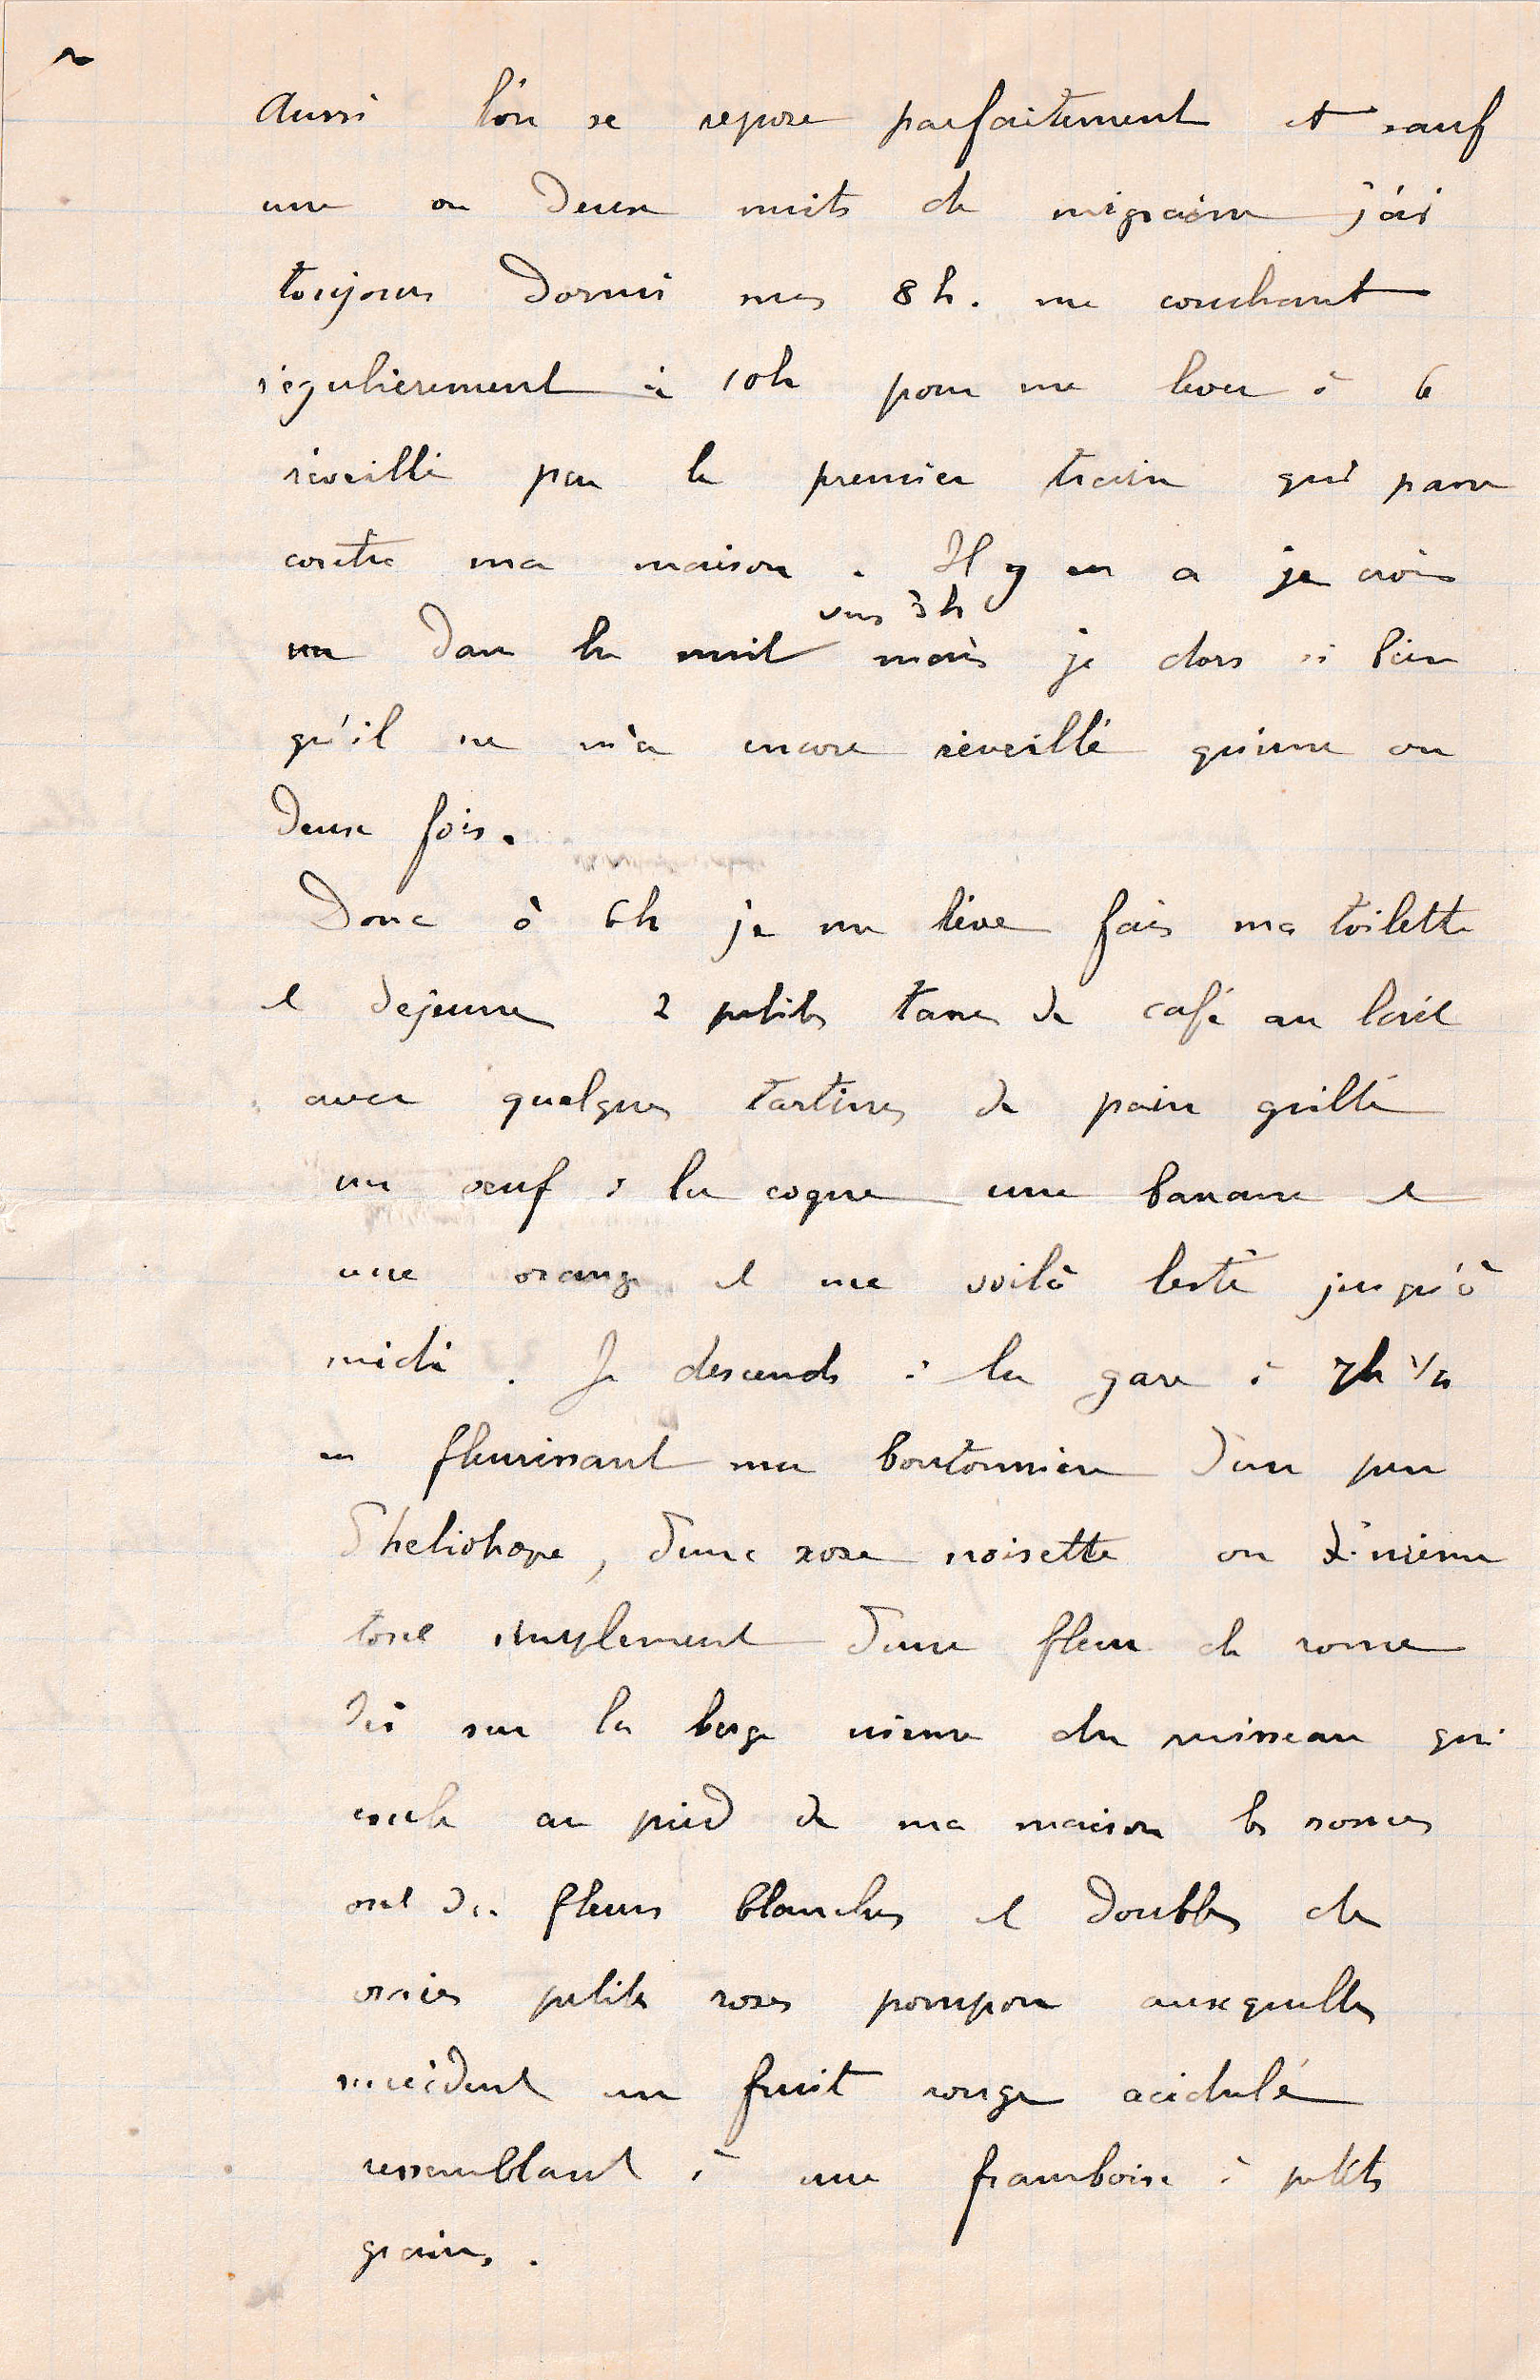 Aussi l'on se repose parfaitement et sauf
une ou deux nuits de migraine j'ai
toujours dormi mes 8 h. me couchant
régulièrement à 10h pour me lever à 6
réveillé par le premier train qui passe
contre ma maison . Il y en a je crois
vers 3h
un dans la nuit mais je dors si bien
qu'il ne m'a encore réveillé qu'une ou
deux fois.
Donc à 6h je me lève fais ma toilette
et déjeune 2 petites tasses de café au lait
avec quelques tartines de pain grillé
un œuf à la coque une banane et
une orange et me voilà lesté jusqu'à
midi . Je descends à la gare à 7h 1/2
en fleurissant ma boutonnière d'un peu
d'heliotrope, d'une rose noisette ou même
tout simplement d'une fleur de ronce
Ici sur la berge même du ruisseau qui
coule au pied de ma maison les ronces
ont des fleurs blanches et doubles de
vraies petites roses pompon auxquelles
succèdent un fruit rouge acidulé
ressemblant à une framboise à petits
grains .